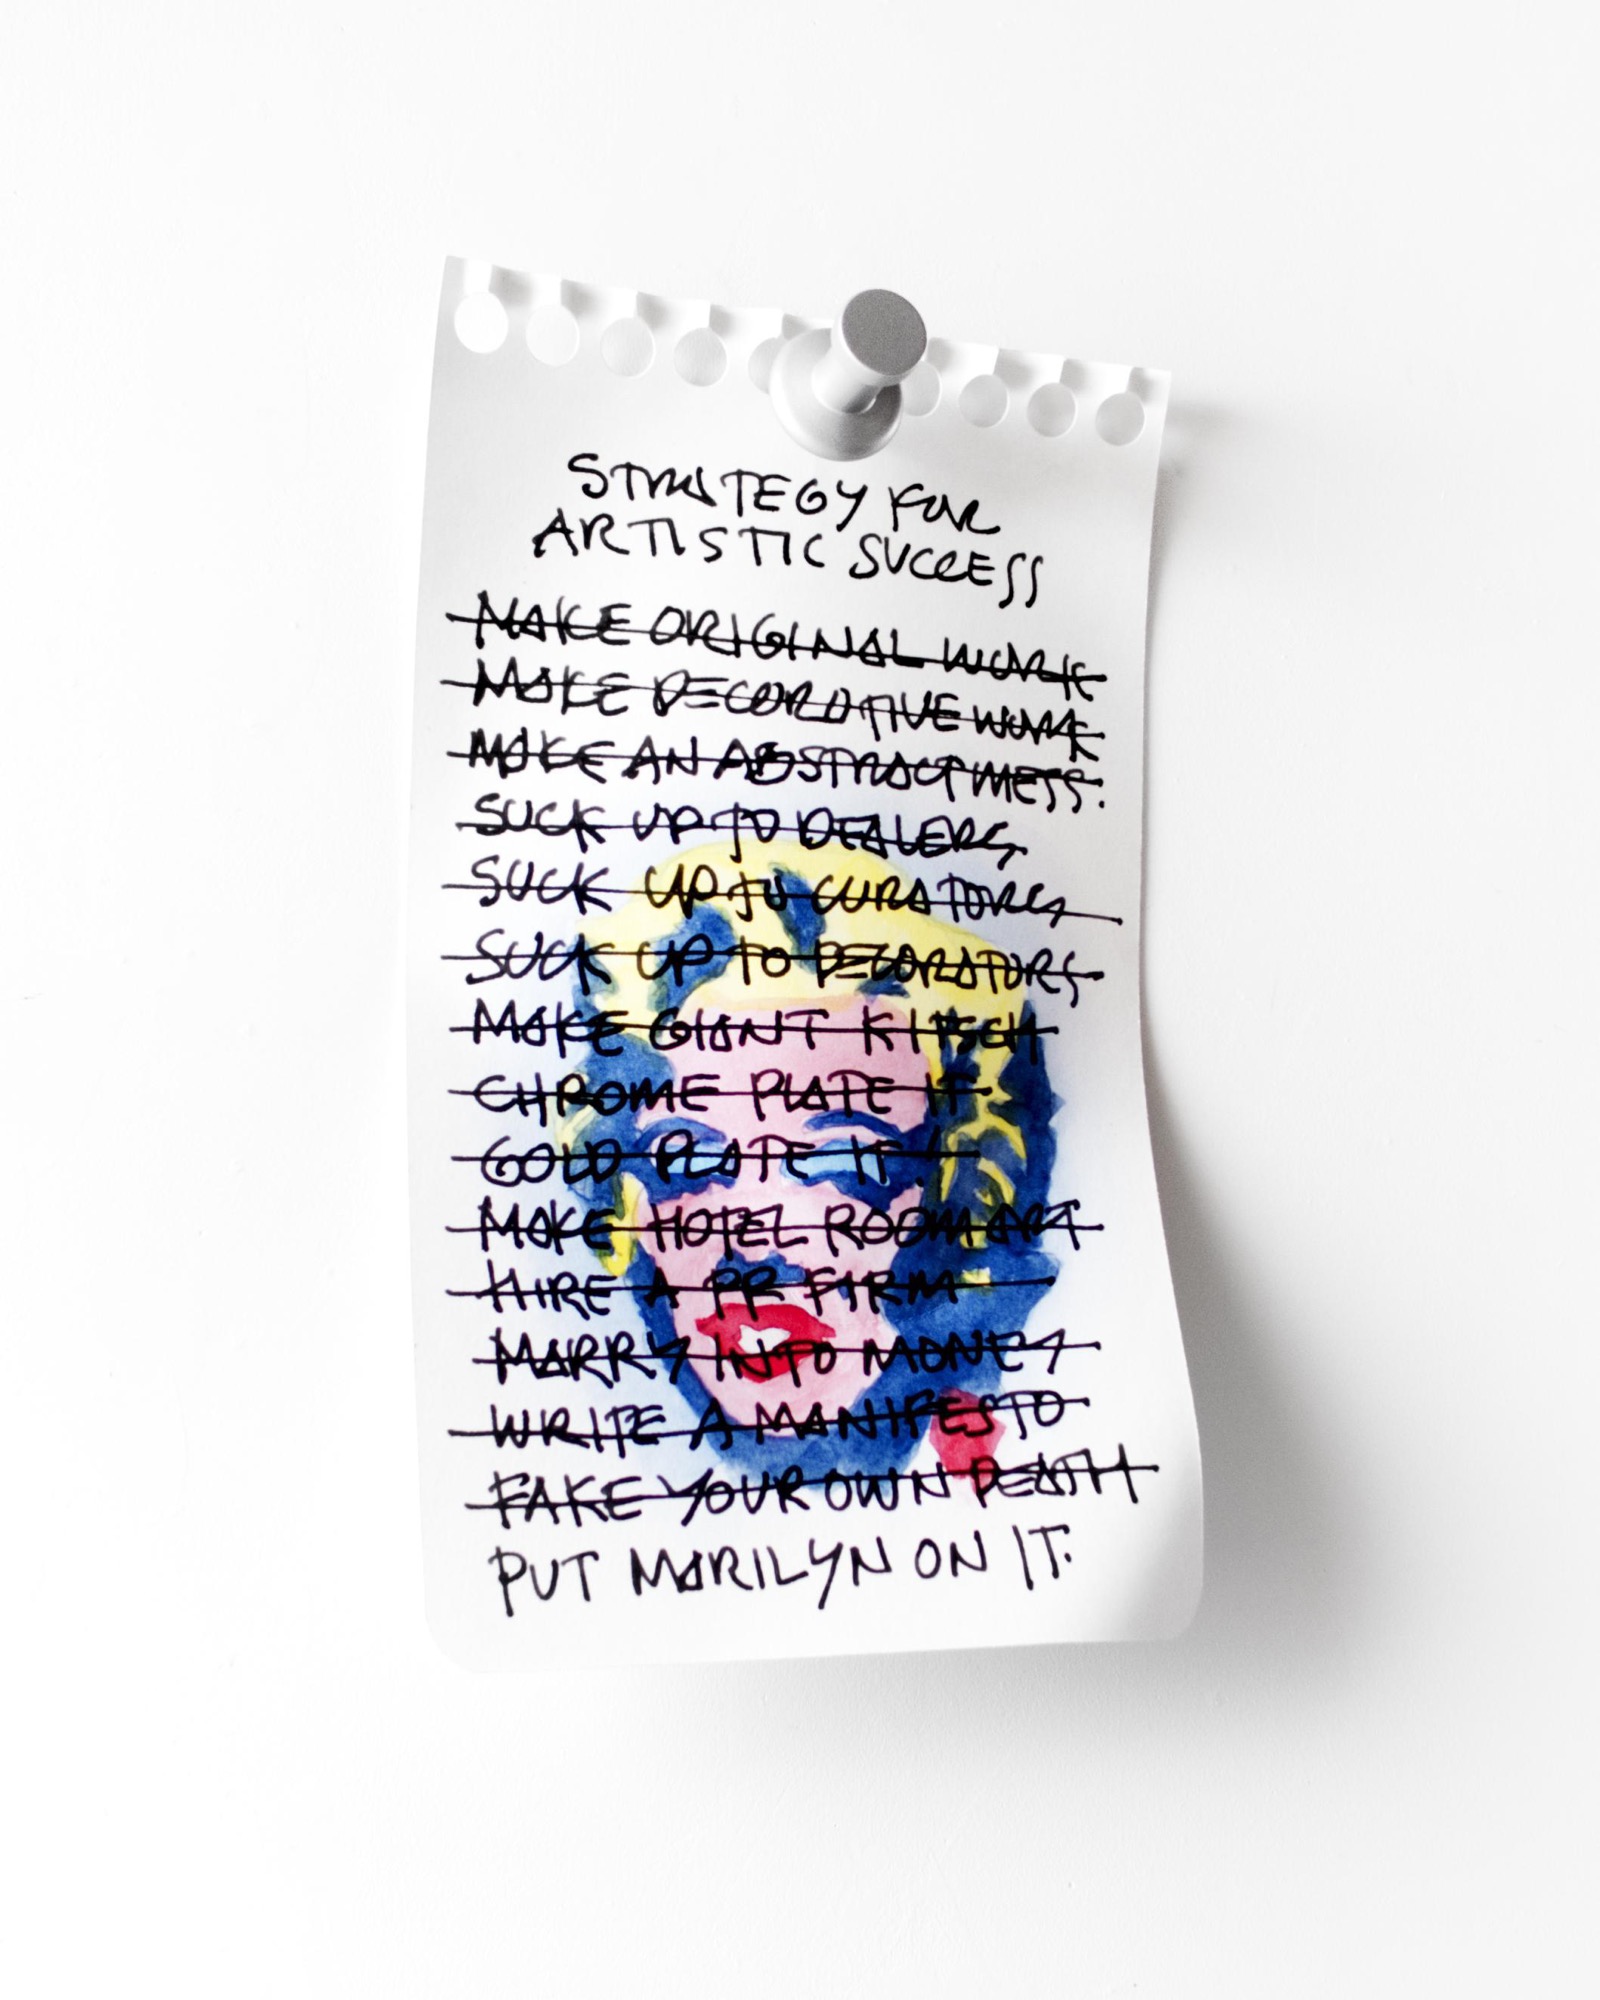 STRATEGY FOR
ARTISTIC SUCCESS
MAKE ORIGINAL WORK
MAKE DECORATIVE WORK
MAKE AN ABSTRACT MESS.
SUCK UP TO DEALERS
SUCK UP TO CURATORS
SUCK UP TO DECORATORS
MAKE GIANT KITSCH
CHROME PLATE IT
GOLD PLATE IT!
MAKE HOTEL ROOM ART
HIRE A PR FIRM
MARRY INTO MONEY
WRITE A MANIFESTO
FAKE YOUR OWN DEATH
PUT MARILYN ON IT.